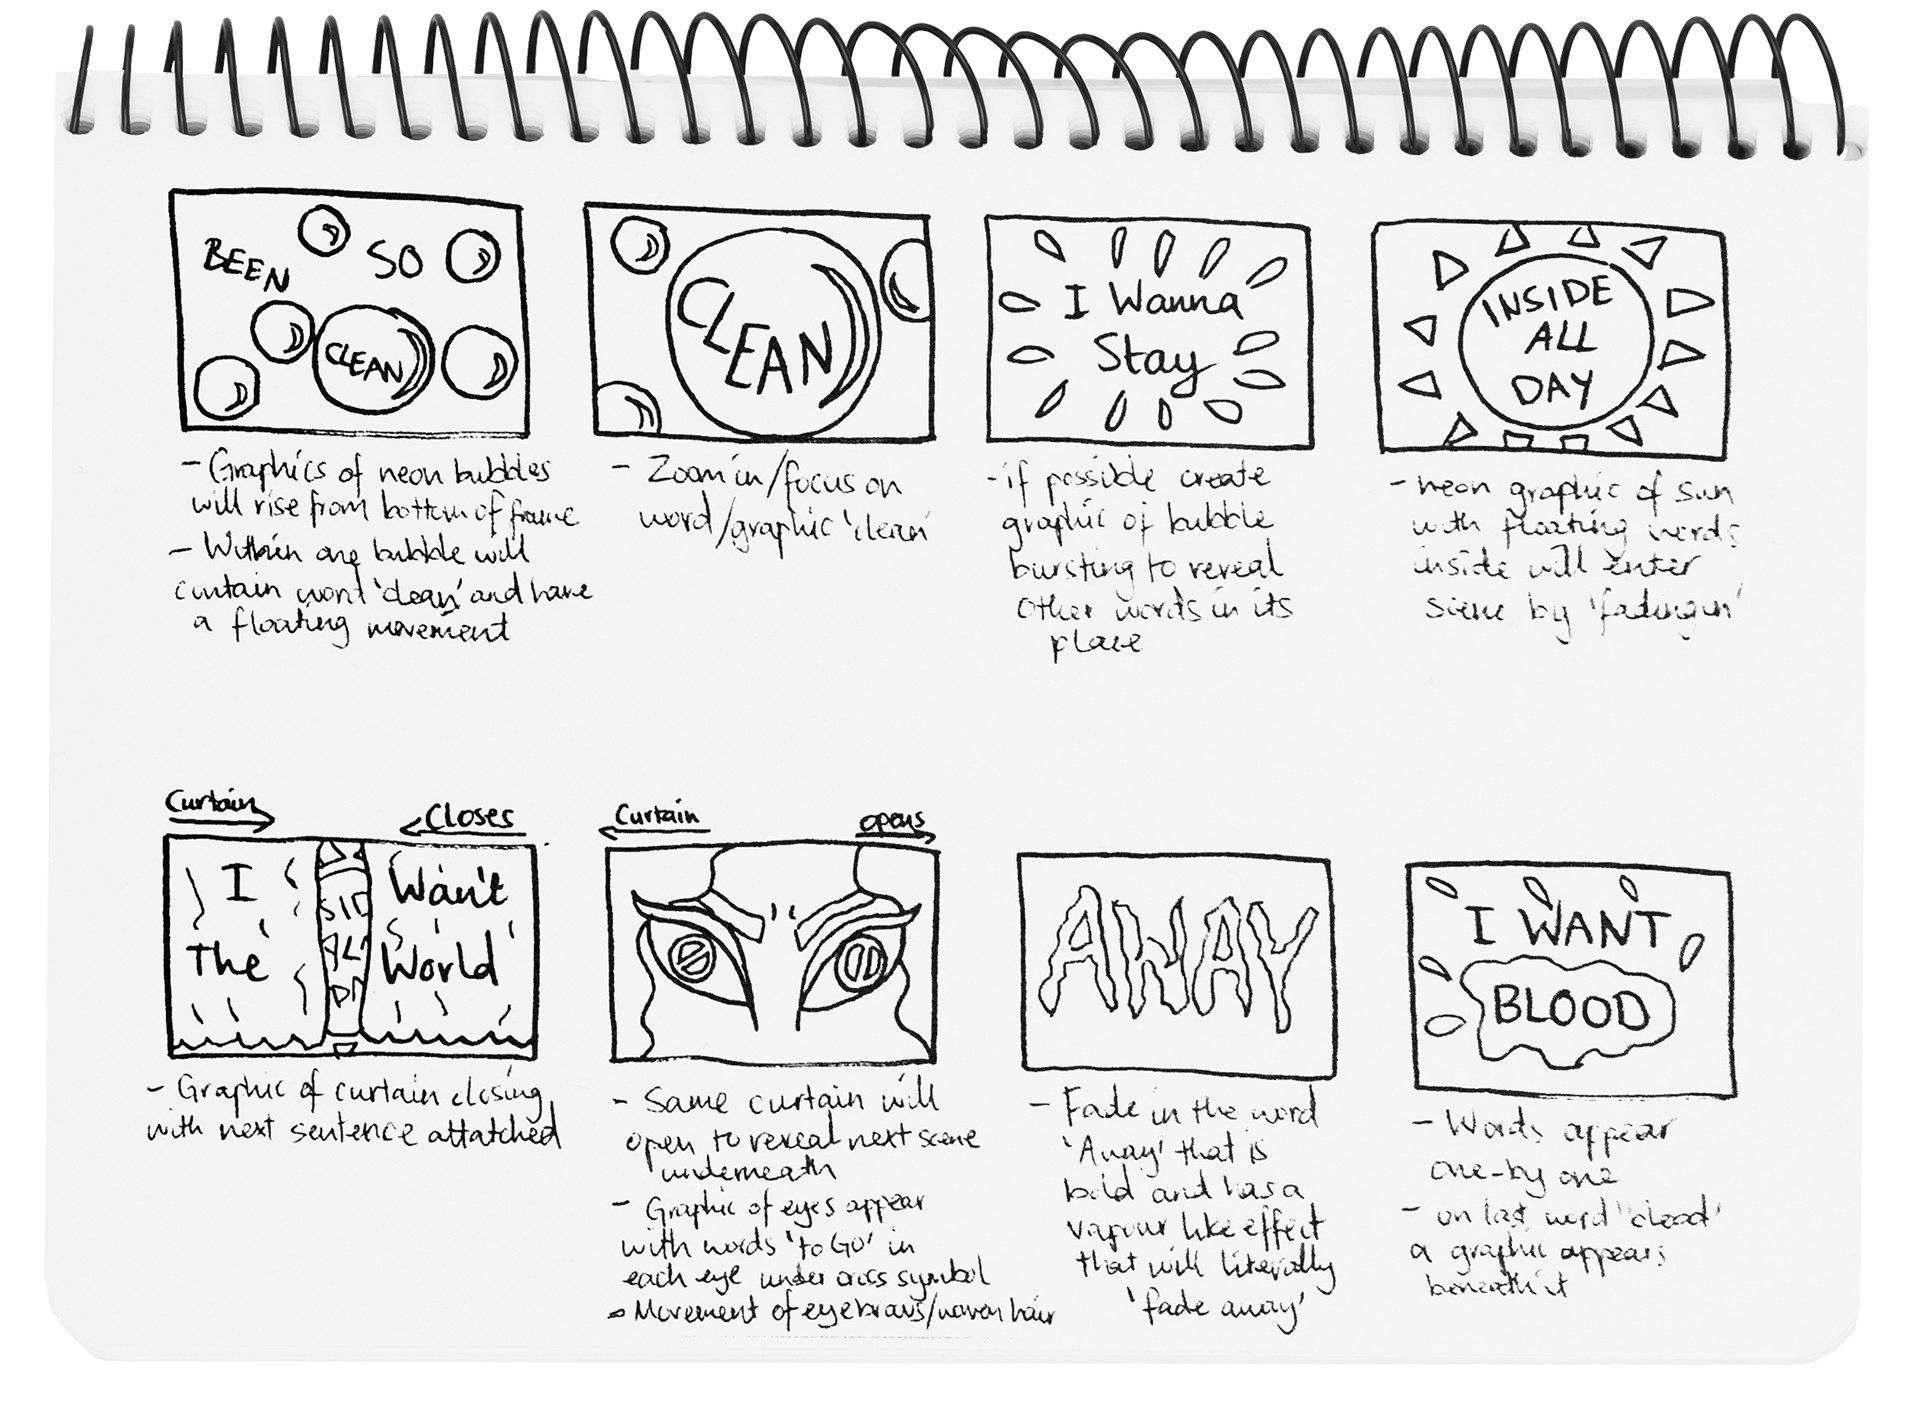 BEEN SO
CLEAN
- Graphics of neon bubbles
will rise from bottom of frame
- Within one bubble will
contain word 'clean' and have
a floating movement
CLEAN
- Zoom in/focus on
word/graphic 'clean'
I Wanna
Stay
- if possible create
graphic of bubble
bursting to reveal
other words in its
place
INSIDE
ALL
DAY
- neon graphic of sun
with floating words
inside will enter
scene by 'fading in'
Curtain
Closes
I Wan't
The World
SID
AL
DA
- Graphic of curtain closing
with next sentence attatched
Curtain
opens
- Same curtain will
open to reveal next scene
underneath
- Graphic of eyes appear
with words 'to Go' in
each eye under cross symbol
Movement of eyebrows/woven hair
AWAY
- Fade in the word
'Away' that is
bold and has a
vapour like effect
that will literally
'fade away'
I WANT
BLOOD
- Words appear
one-by one
- on last word 'blood'
a graphic appears
beneath it